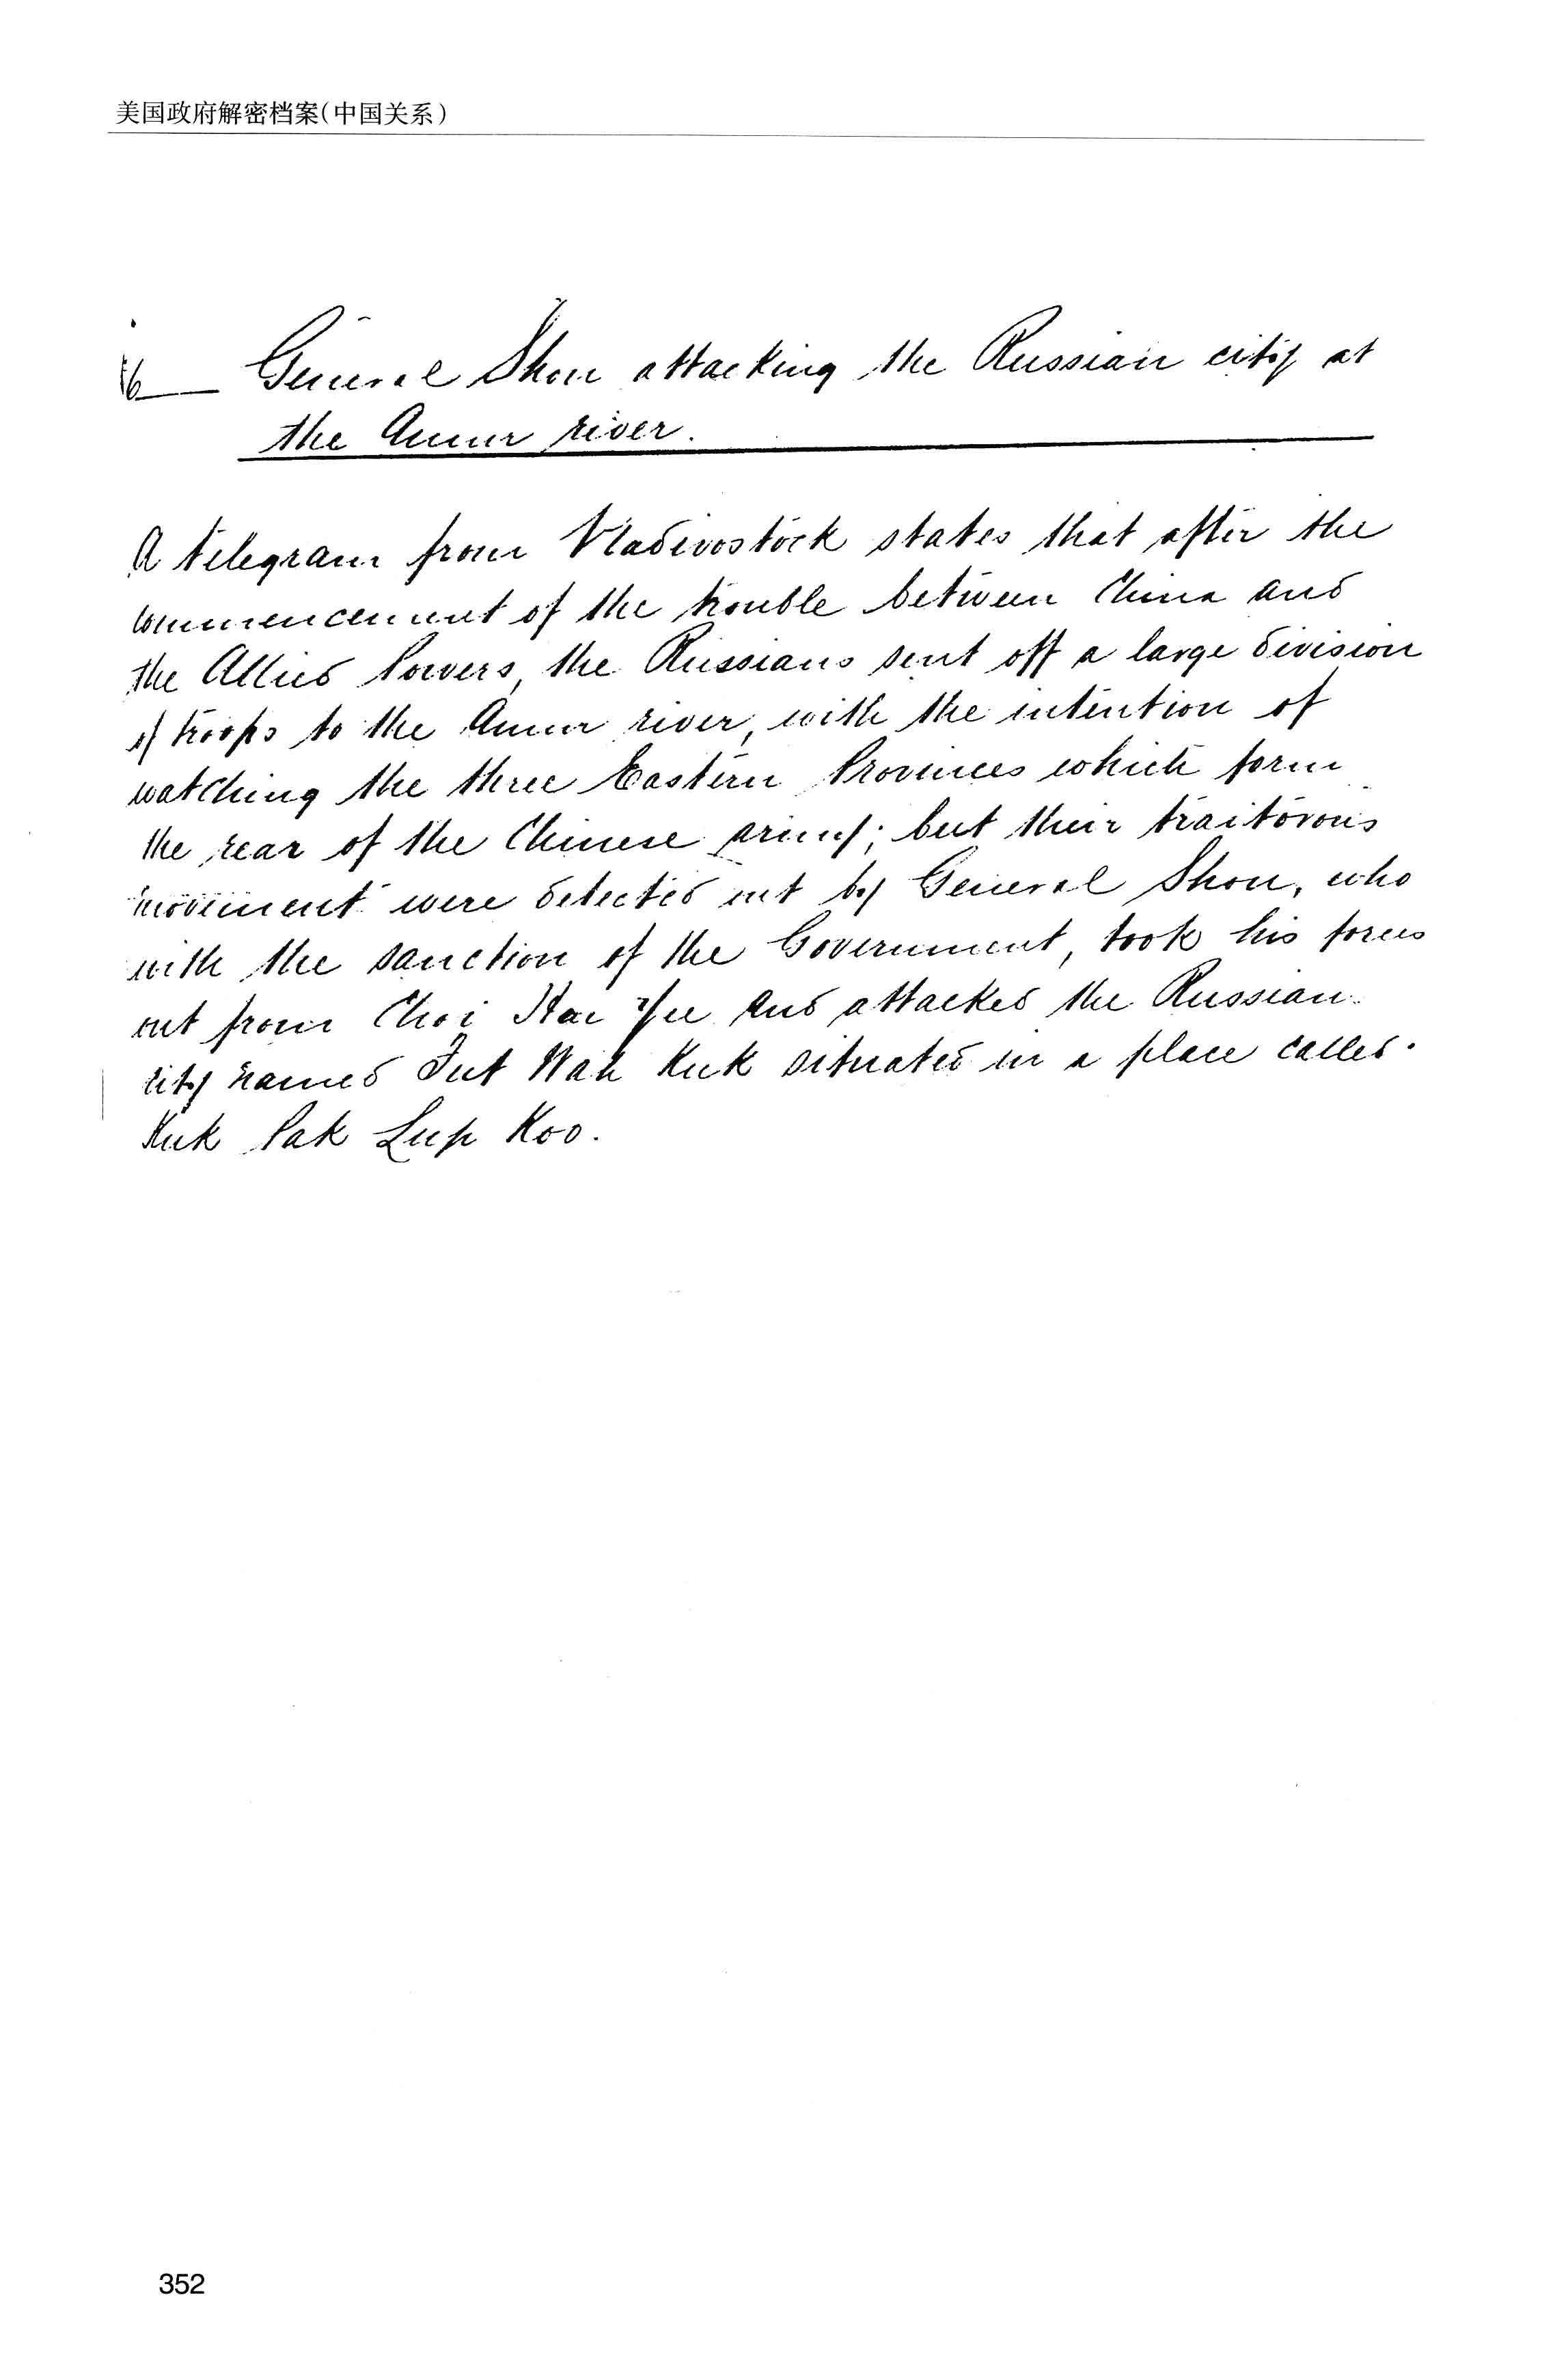 美国政府解密档案(中国关系)
16 General Shou attacking the Russian city at
the Amur river.
A telegram from Vladivostock states that after the
commencement of the trouble between China and
the Allied Powers, the Russians sent off a large division
of troops to the Amur river, with the intention of
watching the three Eastern Provinces which form
the rear of the Chinese army; but their traitorous
movement were detected out by General Shou, who
with the sanction of the Government, took his forces
out from Choi Yee and attacked the Russian
city named Tut Wah Kuk situated in a place called
Kuk Pak Lup Koo.
352